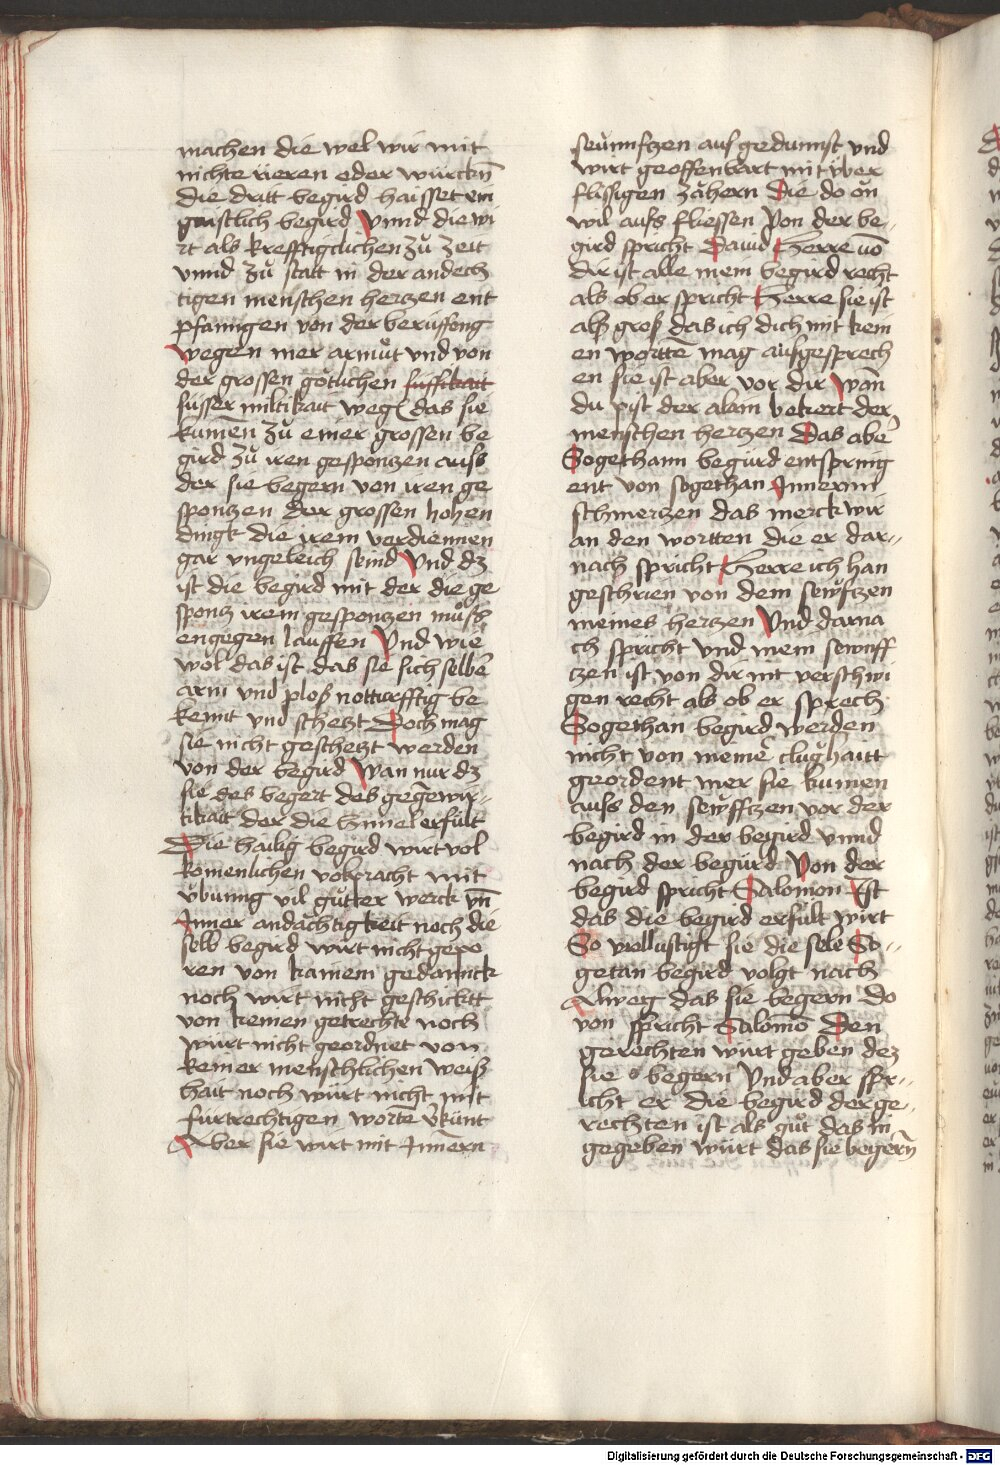 machen die wel wir mit
nichte rieren oder würckn̄
die dritt begird haisset ein
gaistlich begird Vnnd die wi
rt als krefftigclichen zů zeit
vnnd zů statt in der andech
tigen menschen hertzen ent
pfanngen von der berüffong
wegen iner armůt vnd von
der grossen götlichen süssikait
süsser miltikait weg das sie
kumen̄ zů einer grossen be
gird zů iren gesponczen auss
der sie begern von iren ge
sponczen der grossen hohen
dingk die irem verdiennen
gar vngeleich seind Vnd dz
ist die begird mit der die ge
sponcz irem gesponczen můss
engegen lauffen Vnd wie
wol das ist das sie sich selber
arm vnd ploß notturfftig be
kennt vnd schetzt Doch mag
sie nicht geschetzt werden
von der begird Wan nur dz
sie des begert des gegewir-
tikait der die himel erfült
Die hailig begird wirt vol
komenlichen volpracht mit
ůbunng vil gůtter werck vn̄
Inner andachtigkeit noch die
selb begird wirt nicht gepo
ren von kainem gedannck
noch wirt nicht geschicktt
von keinen getrechte noch
würt nicht geordnet von
keiner menschlichen weiß
hait noch würt nicht mit
fürtrechtigen worte v̄künt
Aber sie wirt mit Innern
seünnftzen aus gedunnst vnd
wirt geoffenbart mit über
flüssigen zähern Die do on
wil auss fliessen Von der be-
gird spricht Dauid Herre vō
dir ist alle mein begird recht
als ob er spricht Herre sie ist
als groß das ich dich mit kein
en wortte mag außgesprech
en sie ist aber vor dir Wān
du pist der alain bekert der
menschen hertzen Das aber
Sogethann begird entspring
ent von sogethan Innerm
schmertzen das merck wir
an den wortten die er dar-
nach spricht Herre ich han
geschrien von dem sewftzen
meines hertzen Vnd darna
ch spricht vnd mein sewnff
tzen ist von dir nit verschwi
gen recht als ob er sprech
Sogethan begird werden
nicht von meine clughaitt
geordent wer sie kumen
auss den sewfftzen vor der
begird in der begird vnnd
nach der begürd Von der
begird spricht Salomon Ist
das die begird erfült wirt
So wollustigt sie die sele So-
getan begird volgt nach
Alweg das sie begern Do
von spricht Salomō Den
gerechten würt geben dez
sie begern Vnd aber spr-
icht er die begird der ge-
rechten ist als gůt das in
gegeben würt das sie begern̄
Digitalisierung gefördert durch die Deutsche Forschungsgemeinschaft - DFG